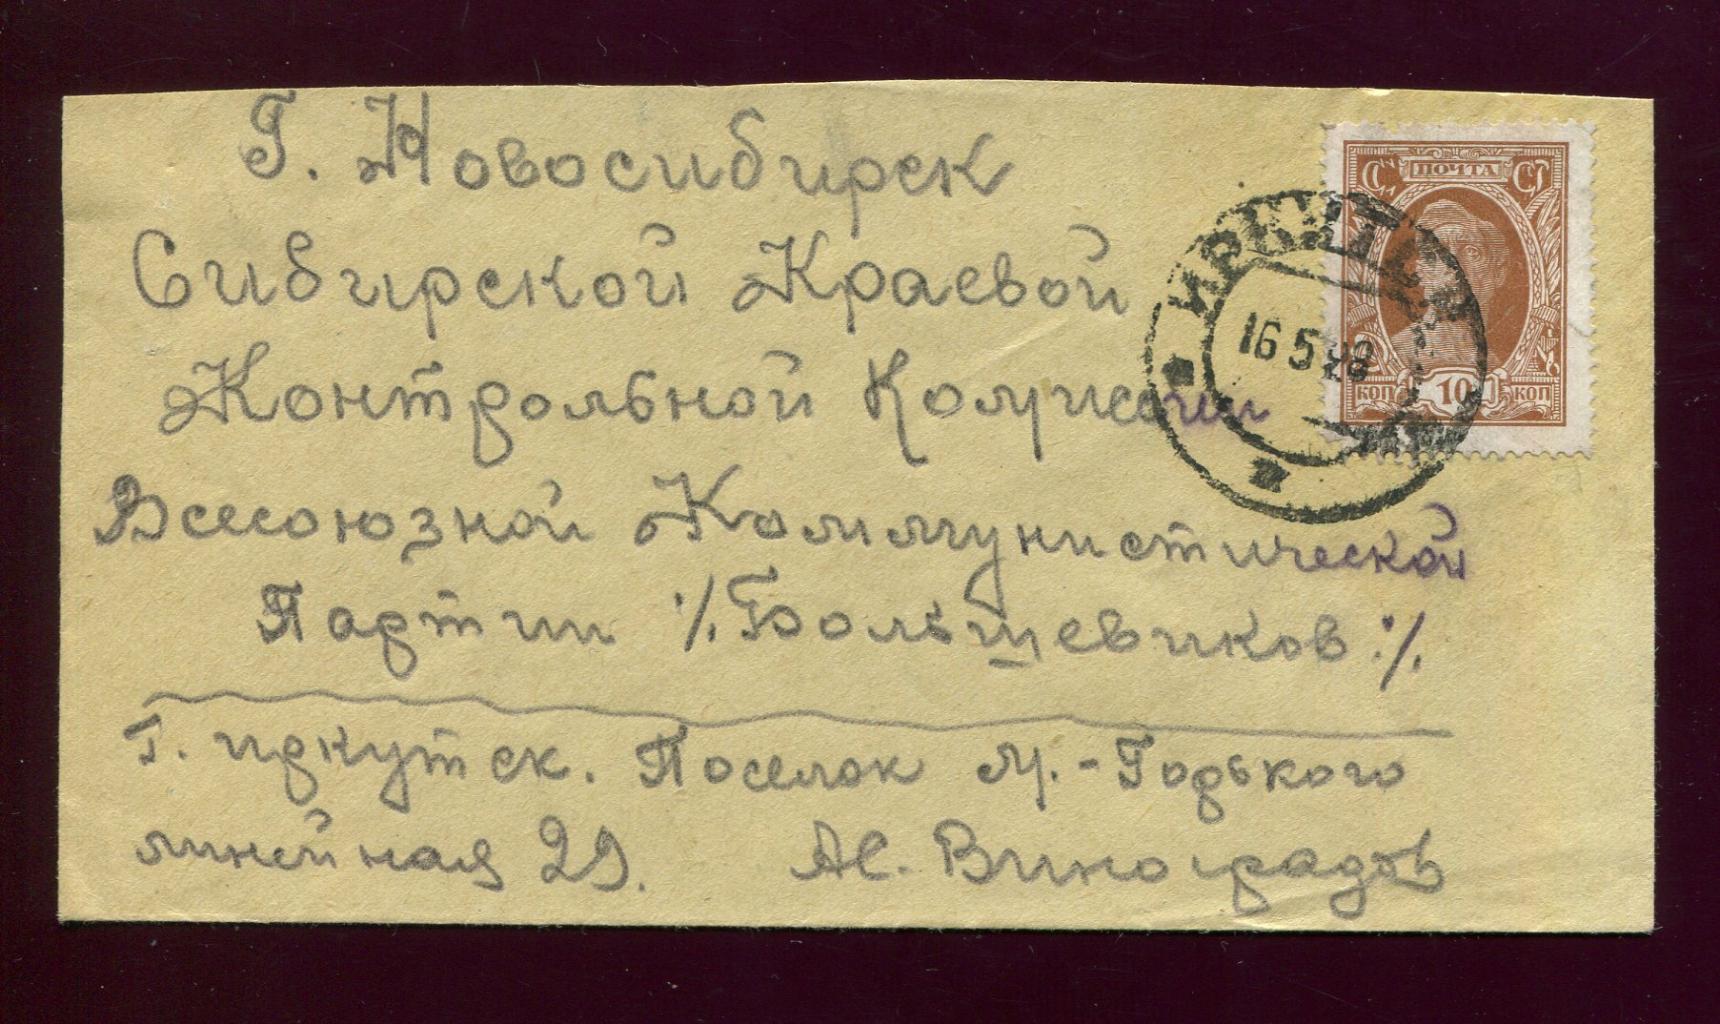 Г. Новосибирск
Сибирской Краевой
Контрольной Комисии
Всесоюзной Коммунистической
Партии ./. Большевиков ./.
Г. Иркутск. Поселок М.-Горького
линейная 29. Ас. Виноградов
ПОЧТА
КОП 10 КОП
ИРКУТСК
16 5 28